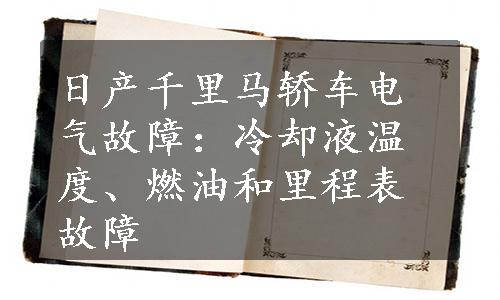 日产千里马轿车电
气故障：冷却液温
度、燃油和里程表
故障